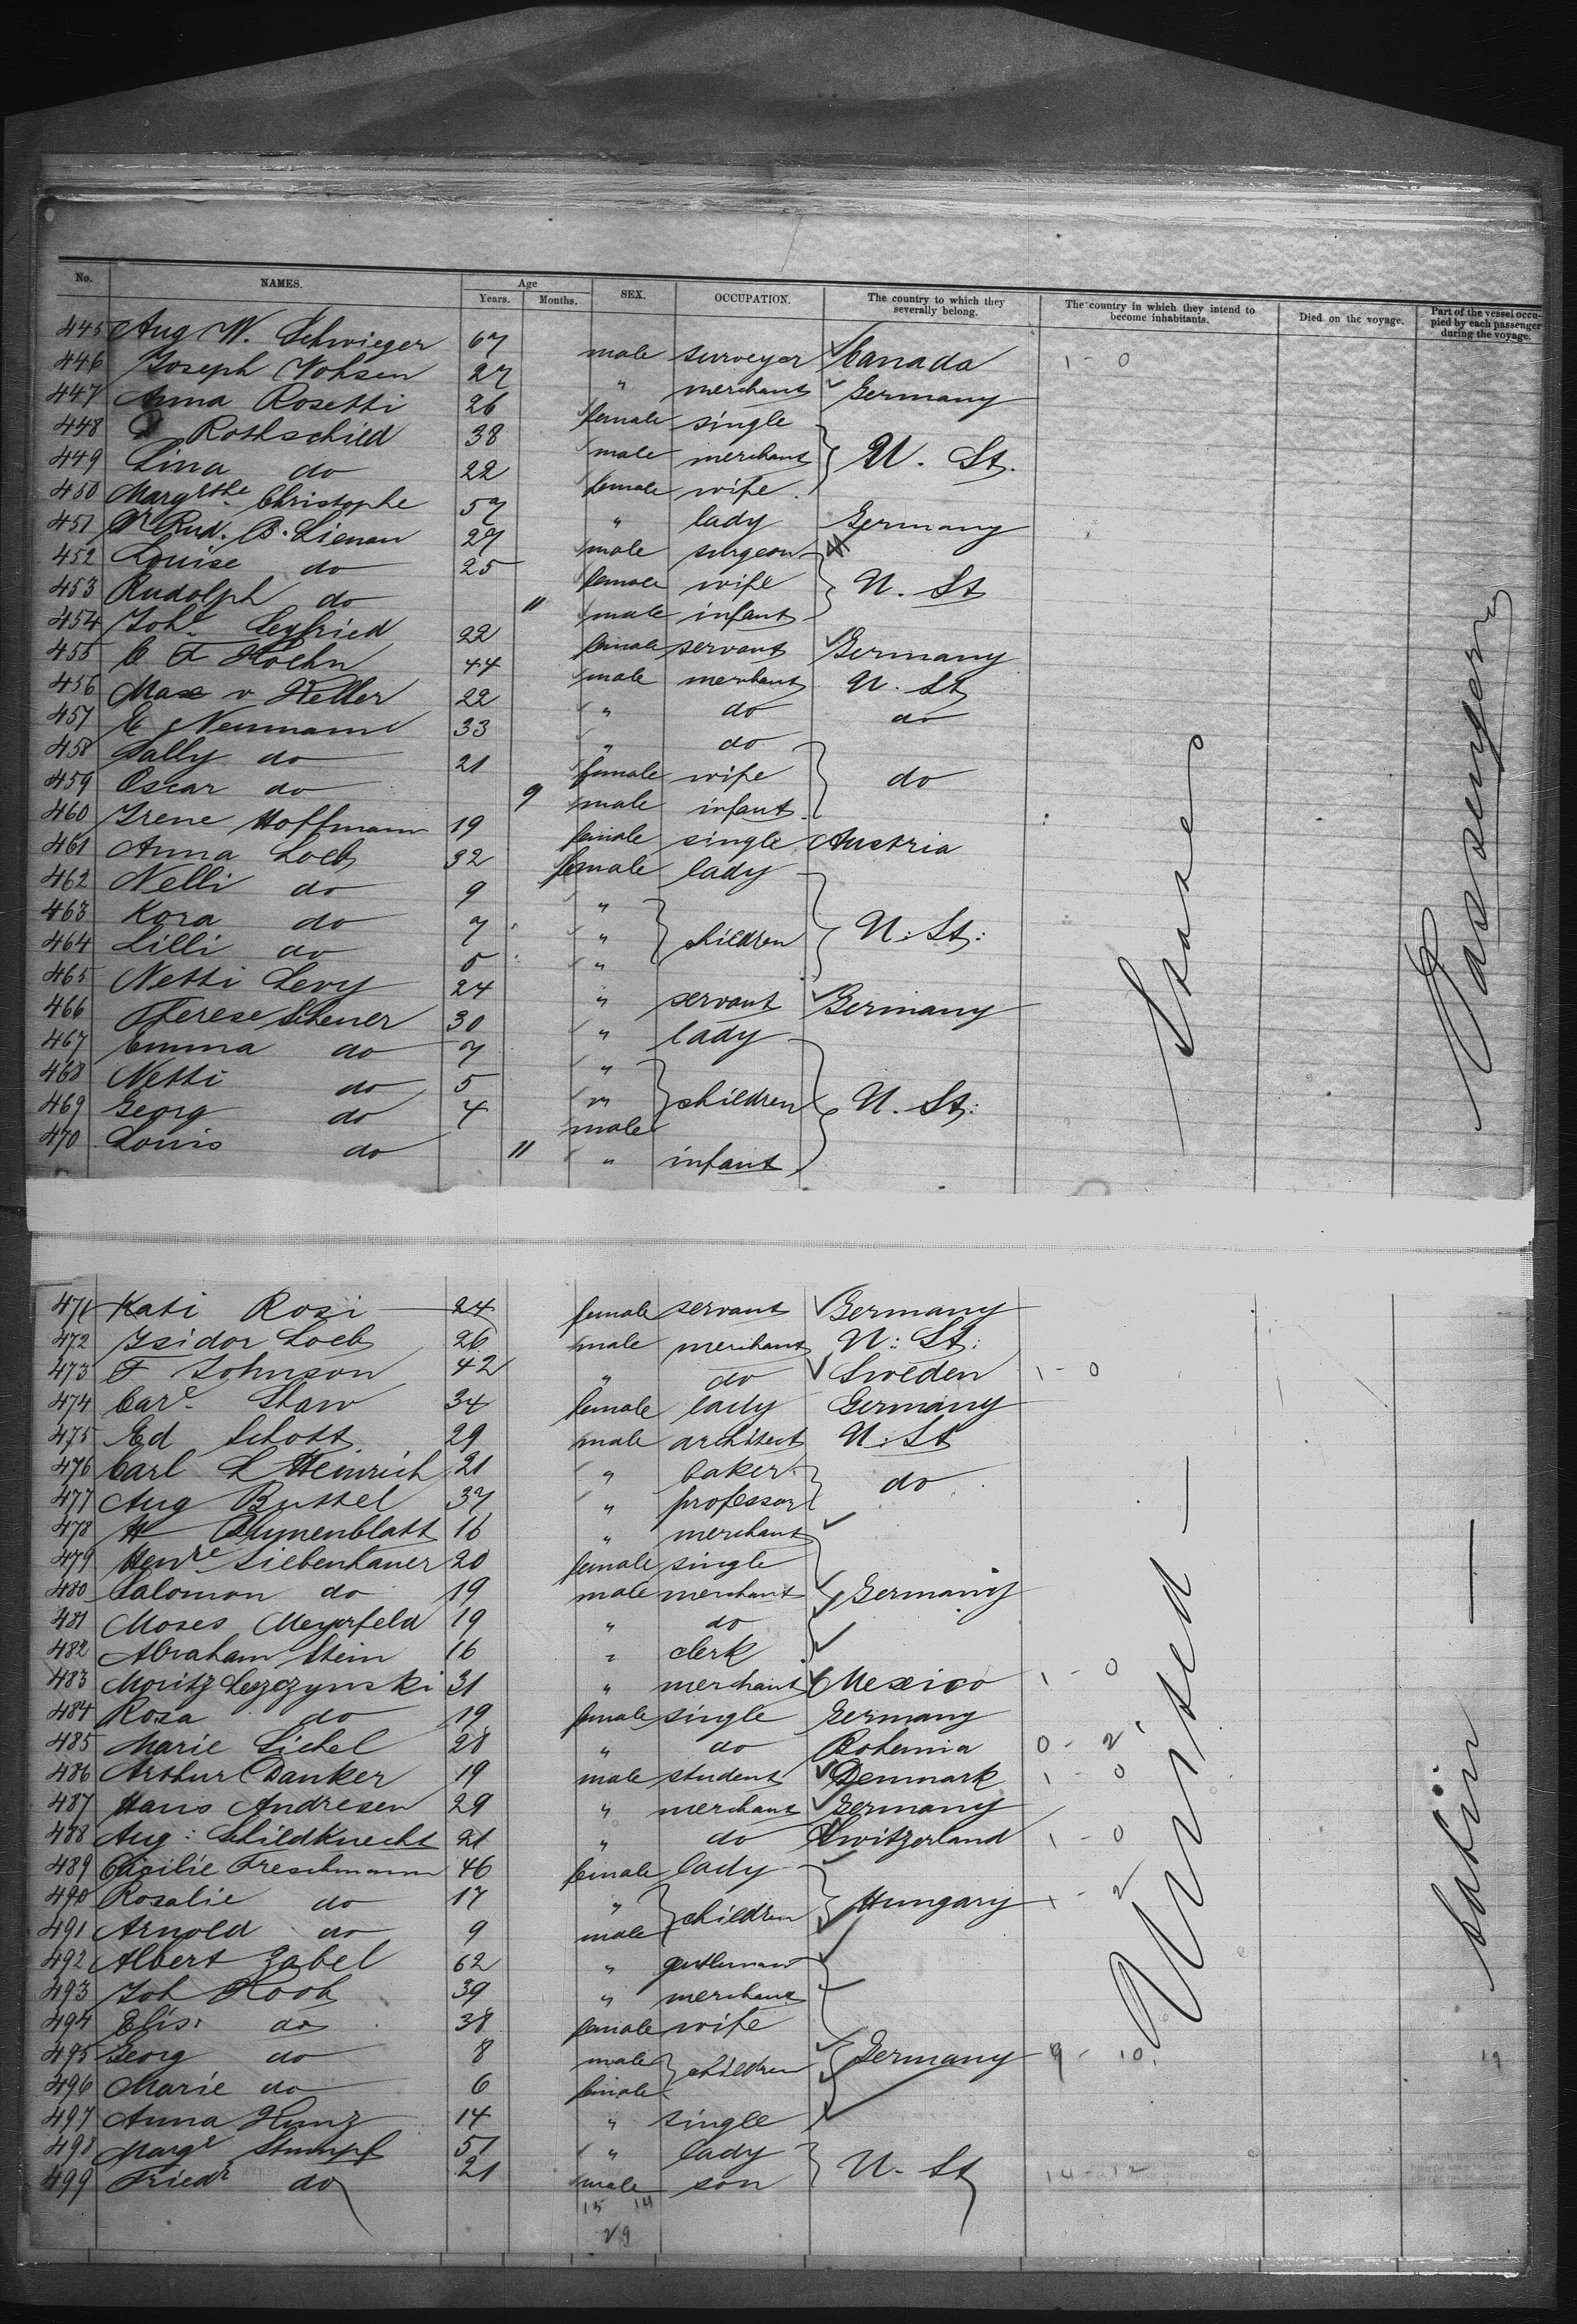 No. NAMES. Age Years. Months. SEX. OCCUPATION. The country to which they severally belong. The country in which they intend to become inhabitants. Died on the voyage. Part of the vessel occupied by each passenger during the voyage.
445 Aug W. Schwieger 67 male surveyor Canada 1 - 0
446 Joseph Johsen 27 " merchant Germany
447 Anna Rosetti 26 female single
448 Rothschild 38 male merchant U. St.
449 Lina do 22 female wife
450 Margrthe Christophe 57 " lady Germany
451 Dr Rud. B. Lienau 27 male surgeon
452 Louise do 25 female wife U. St
453 Rudolph do 11 male infant
454 Johe Seyfried 22 female servant Germany
455 C F Koehn 44 male merchant U. St
456 Max v Heller 22 " do do
457 C Neumann 33 " do
458 Sally do 21 female wife do
459 Oscar do 9 male infant
460 Irene Hoffmann 19 female single Austria
461 Anna Loeb 32 female lady
462 Nelli do 9 "
463 Kora do 7 " children U. St.
464 Lilli do 5 "
465 Netti Levy 24 " servant Germany
466 Therese Scheuer 30 " lady
467 Emma do 7 "
468 Netti do 5 " children U. St.
469 Georg do 4 male
470 Louis do 11 " infant
471 Kati Rosi 24 female servant Germany
472 Isidor Loeb 26 male merchant U. St.
473 F Johnson 42 " do Sweden 1 - 0
474 Care Shaw 34 female lady Germany
475 Ed Schott 29 male architect U. St
476 Carl L Heinrich 21 " baker do
477 Aug Buttel 37 " professor
478 H Blumenblatt 16 " merchant
479 Henre Siebenhauer 20 female single
480 Salomon do 19 male merchant Germany
481 Moses Meyerfeld 19 " do
482 Abraham Stein 16 " clerk
483 Moritz Lezczynski 31 " merchant Mexico 1 - 0
484 Rosa do 19 female single Germany
485 Marie Sichel 28 " do Bohemia 0 - 2
486 Arthur Danker 19 male student Denmark 1 - 0
487 Hans Andresen 29 " merchant Germany
488 Aug: Schildknecht 21 " do Switzerland 1 - 0
489 Cäcilie Freschmann 46 female lady
490 Rosalie do 17 " children Hungary 1 - 2
491 Arnold do 9 male
492 Albert Zabel 62 " gentleman
493 Joh Koch 39 " merchant
494 Elis. do 38 female wife
495 Georg do 8 male children Germany 9 - 10
496 Marie do 6 female
497 Anna Kunz 14 " single
498 Marge Stumpf 51 " lady U. St
499 Friedr do 21 male son 14 - 12
15 14
29
United States
Cajüten Passengers
19